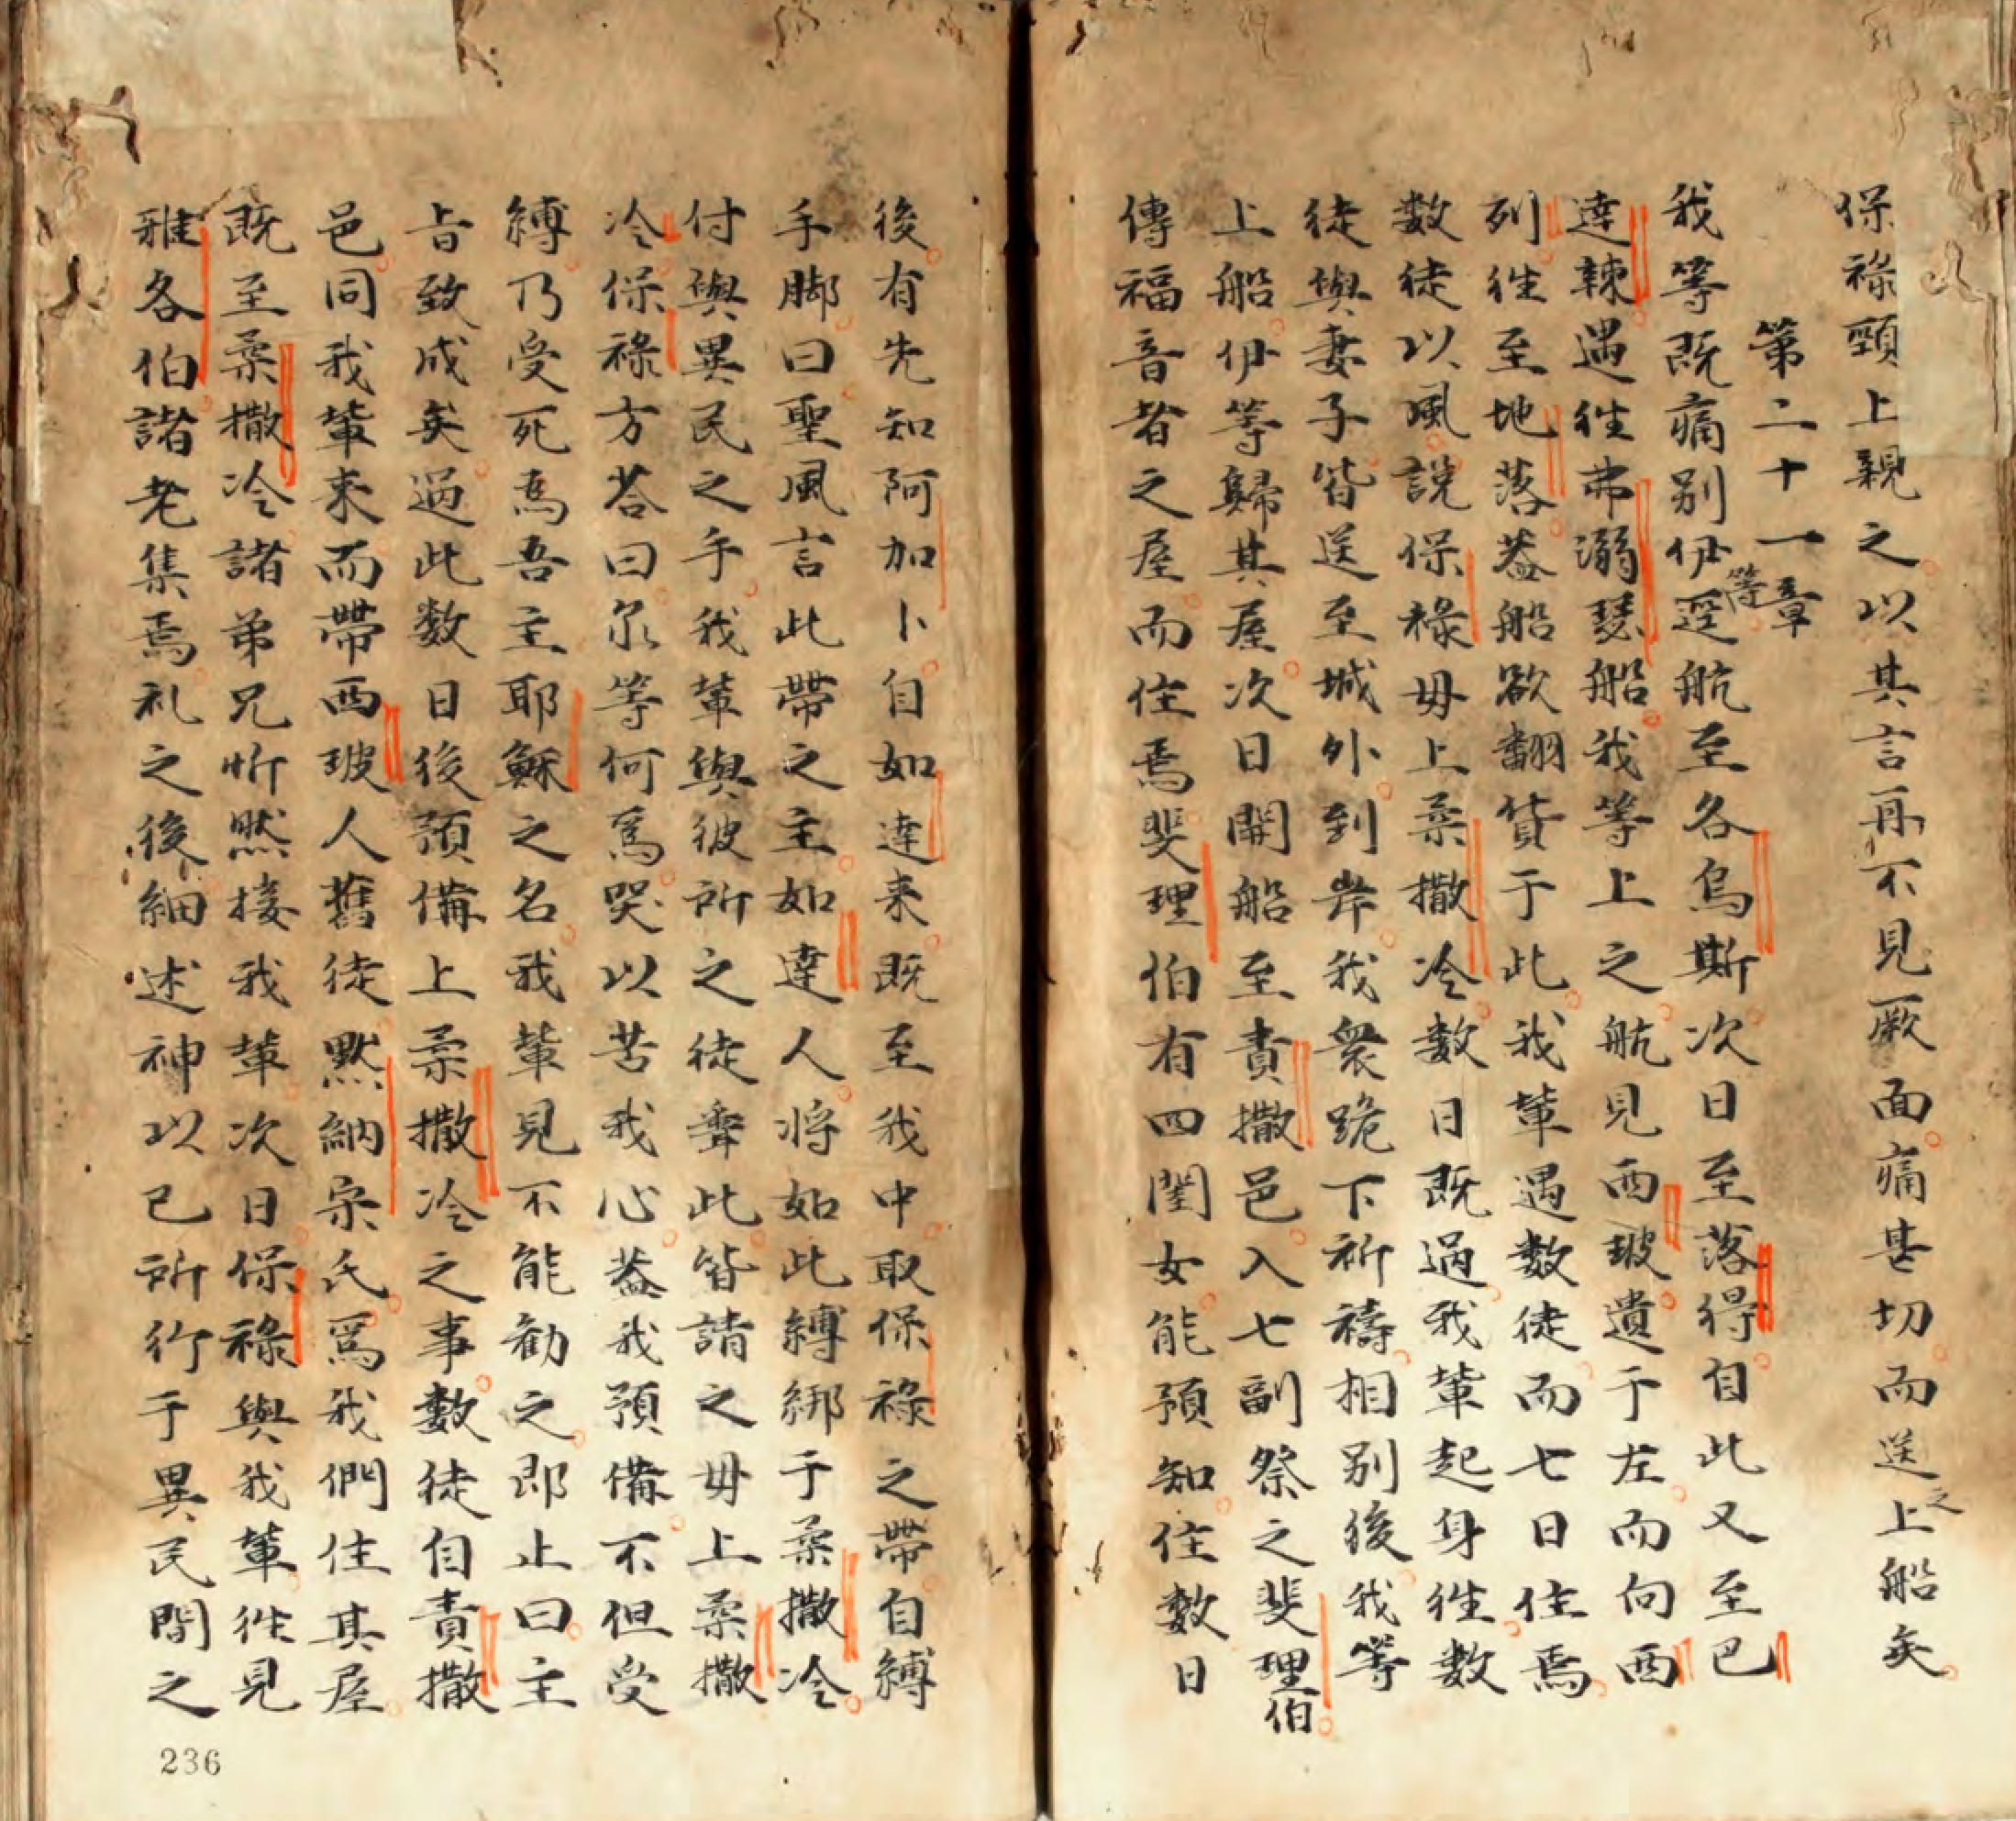 保祿頸上親之以其言再不見厥面痛甚切而送之上船矣
第二十一章
我等既痛別伊等逕航至各烏斯次日至落得自此又至巴
達辣遇徃弗溺瑟船我等上之航見西玻遺于左而向西
列徃至地落葢船欲翻貨于此我軰遇数徒而七日住焉
数徒以風說保祿毋上柔撒冷数日既過我軰起身徃数
徒與妻子皆送至城外到岸我衆跪下祈禱相別後我等
上船伊等歸其屋次日開船至責撒邑入七副祭之斐理伯
傳福音者之屋而住焉斐理伯有四閨女能預知住数日
後有先知阿加卜自如達来既至我中取保祿之帶自縛
手脚曰聖風言此帶之主如達人将如此縛綁于柔撒冷
付與異民之手我軰與彼所之徒聞此皆請之毋上柔撒
冷保祿方荅曰尔等何爲哭以苦我心葢我預備不但受
縛乃受死爲吾主耶穌之名我軰見不能勸之即止曰主
旨致成矣過此数日後預備上柔撒冷之事数徒自責撒
邑同我軰来而帶西玻人舊徒黙納宗氏爲我們住其屋
既至柔撒冷諸弟兄忻然接我軰次日保祿與我軰徃見
雅各伯諸老集焉礼之後細述神以己所行于異民間之
236